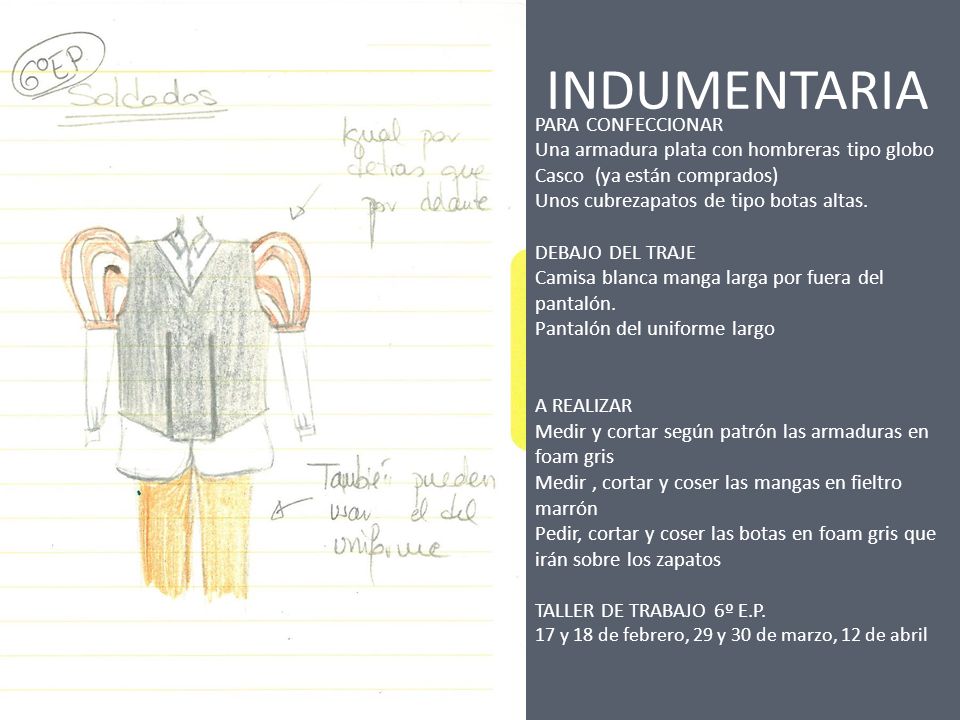 6º EP
Soldados
Igual por
detras que
por delante
También pueden
usar el del
uniforme
INDUMENTARIA
PARA CONFECCIONAR
Una armadura plata con hombreras tipo globo
Casco (ya están comprados)
Unos cubrezapatos de tipo botas altas.
DEBAJO DEL TRAJE
Camisa blanca manga larga por fuera del
pantalón.
Pantalón del uniforme largo
A REALIZAR
Medir y cortar según patrón las armaduras en
foam gris
Medir , cortar y coser las mangas en fieltro
marrón
Pedir, cortar y coser las botas en foam gris que
irán sobre los zapatos
TALLER DE TRABAJO 6º E.P.
17 y 18 de febrero, 29 y 30 de marzo, 12 de abril